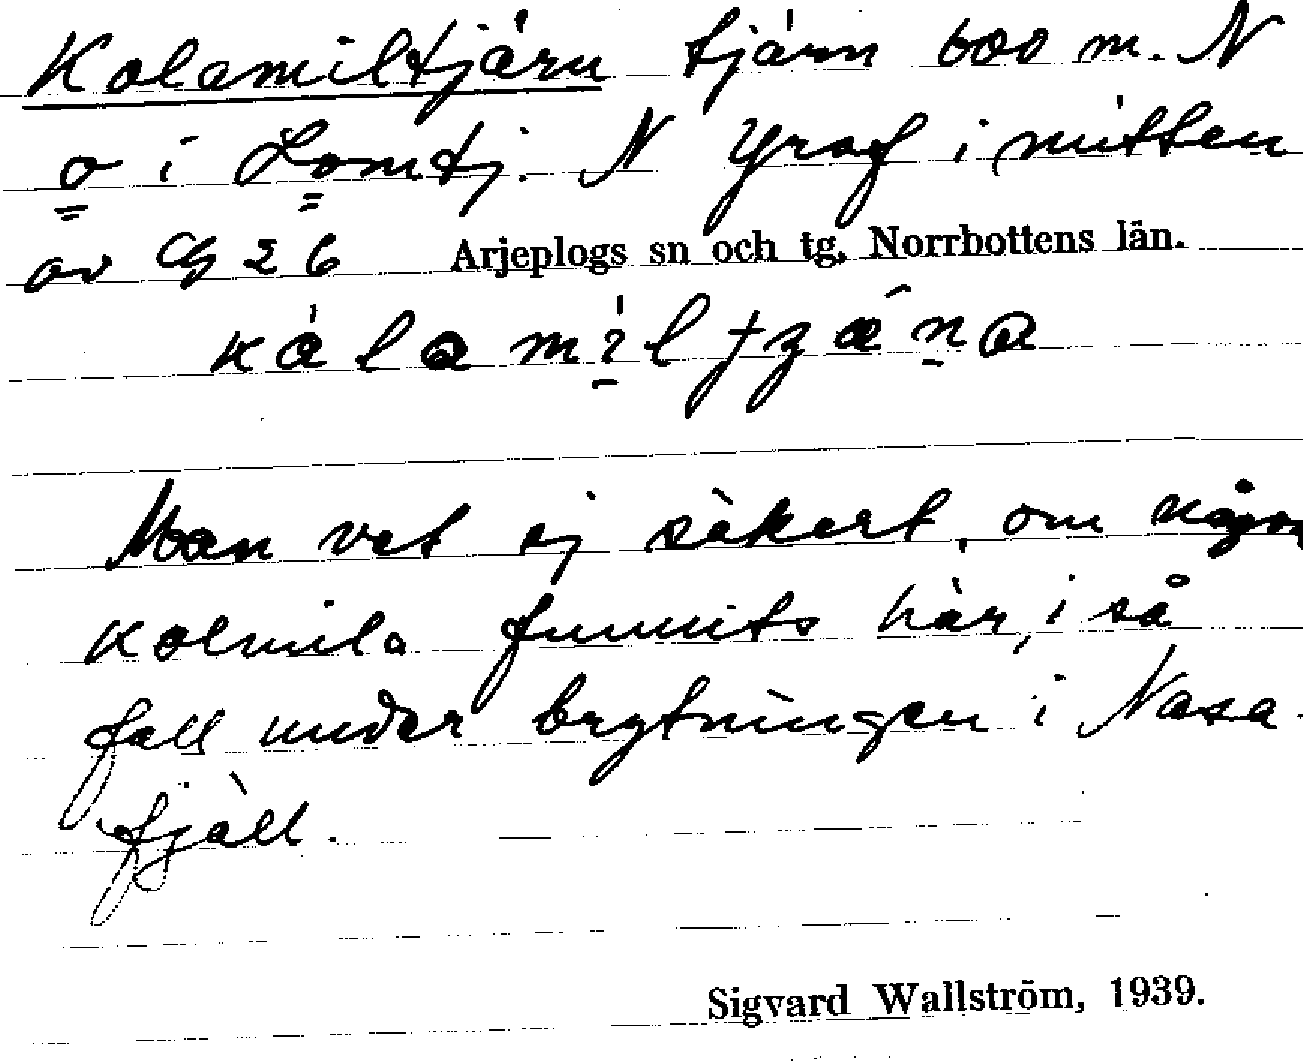 Kolamiltjärn tjärn 600 m. N
o i Lomtj. N Yraf i mitten
av Cg 26 Arjeplogs sn och tg, Norrbottens län.
Man vet ej säkert, om någon
kolmila funnits här, i så
fall under brytningen i Nasa-
fjäll.
Sigvard Wallström, 1939.